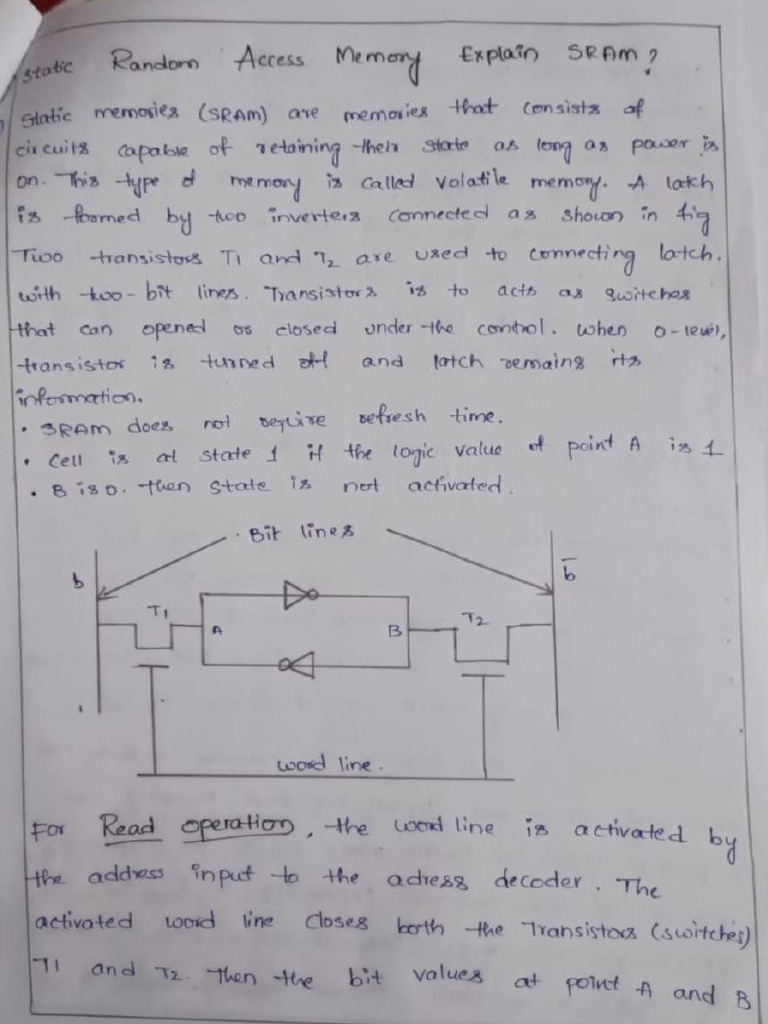 Static Random Access Memory Explain SRAM?
Static memories (SRAM) are memories that consists of
circuits capable of retaining their state as long as power is
on. This type of memory is called volatile memory. A latch
is formed by two inverters connected as shown in fig
Two transistors T1 and T2 are used to connecting latch.
with two-bit lines. Transistors is to acts as switches
that can opened or closed under the control. when 0-level,
transistor is turned off and latch remains its
information.
• SRAM does not require refresh time.
• Cell is at state 1 if the logic value of point A is 1
• B is 0. then state is not activated.
Bit lines
b
b̅
T1
T2
A
B
word line.
For Read operation, the word line is activated by
the address input to the adress decoder. The
activated word line closes both the Transistors (switches)
T1 and T2. Then the bit values at point A and B